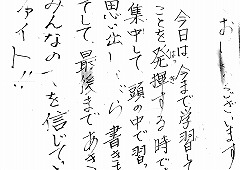 お ございます
今日は、今まで学習して
ことを発揮する時で
集中して、頭の中で習っ
思い出し ら書きま
そして、最後まであき
みんなの を信じてい
ファイト!!